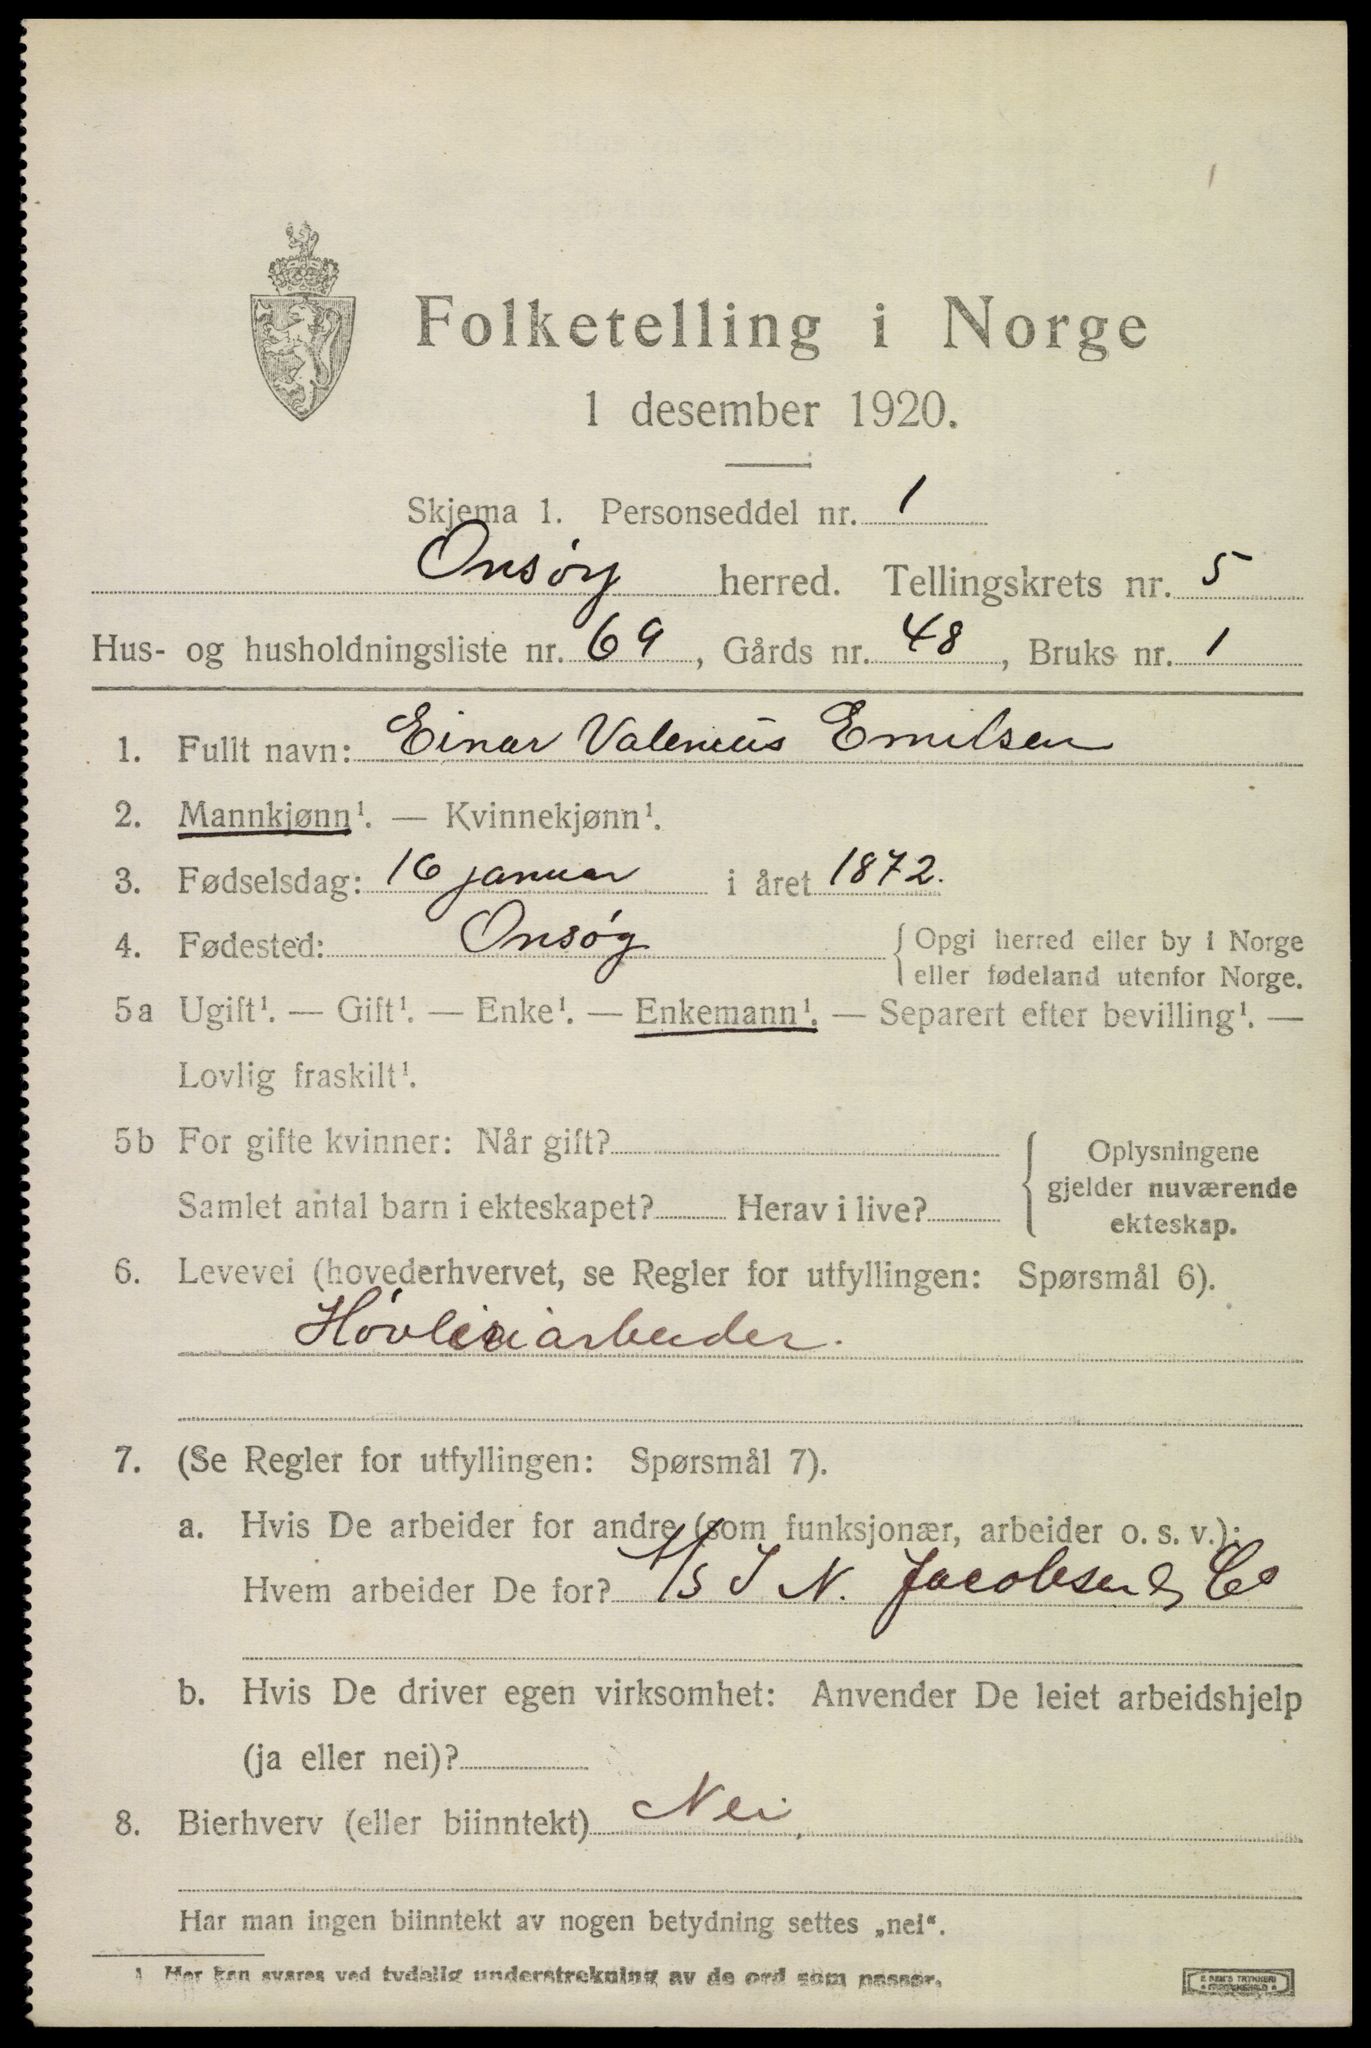 1
Folketelling i Norge
1 desember 1920.
Skjema 1. Personseddel nr. 1
Onsøy herred. Tellingskrets nr. 5
Hus- og husholdningsliste nr. 69, Gårds nr. 48, Bruks nr. 1
1. Fullt navn: Einar Valenius Emilsen
2. Mannkjønn¹. — Kvinnekjønn¹.
3. Fødselsdag: 16 januar i året 1872.
4. Fødested: Onsøy { Opgi herred eller by i Norge
eller fødeland utenfor Norge.
5a Ugift¹. — Gift¹. — Enke¹. — Enkemann¹. — Separert efter bevilling¹. —
Lovlig fraskilt¹.
5b For gifte kvinner: Når gift?
Samlet antal barn i ekteskapet? Herav i live?
Oplysningene
gjelder nuværende
ekteskap.
6. Levevei (hovederhvervet, se Regler for utfyllingen: Spørsmål 6).
Høvleriarbeider.
7. (Se Regler for utfyllingen: Spørsmål 7).
a. Hvis De arbeider for andre (som funksjonær, arbeider o. s. v.):
Hvem arbeider De for? A/S J N. Jacobsen & Co
b. Hvis De driver egen virksomhet: Anvender De leiet arbeidshjelp
(ja eller nei)?
8. Bierhverv (eller biinntekt) Nei.
Har man ingen biinntekt av nogen betydning settes „nei".
1 Her kan svares ved tydelig understrekning av de ord som passer.